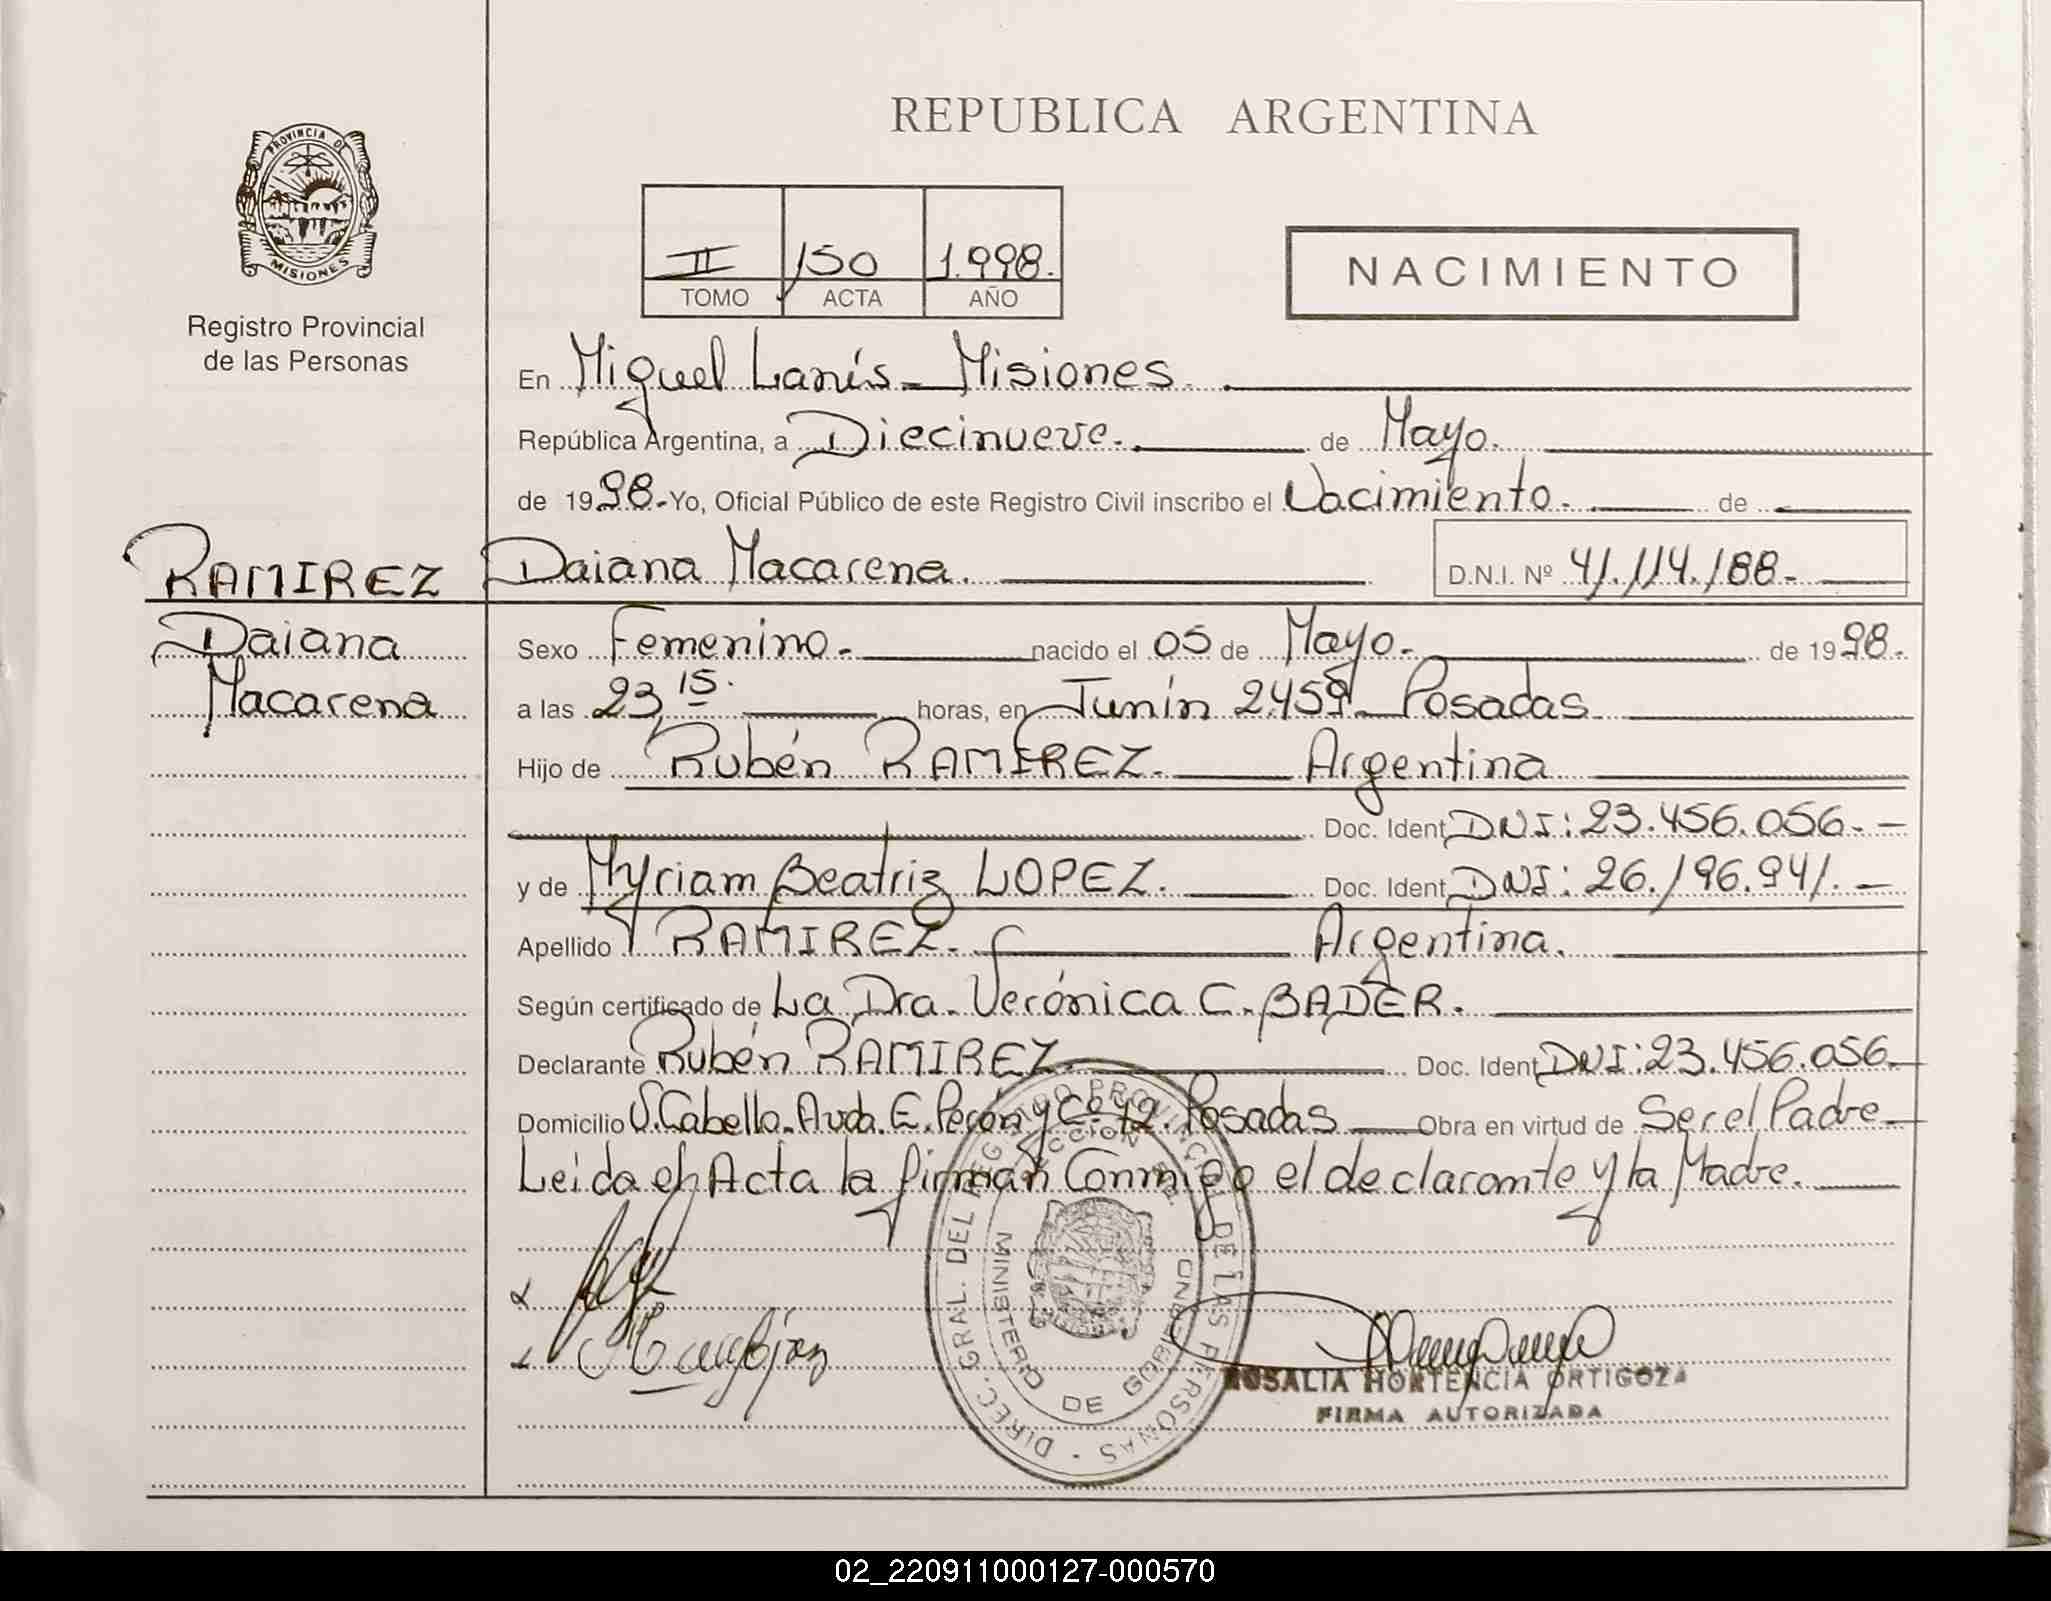 REPUBLICA ARGENTINA
PROVINCIA DE
MISIONES
Registro Provincial
de las Personas
II 150 1.998.
TOMO ACTA AÑO
NACIMIENTO
En Miguel Lanús - Misiones.
República Argentina, a Diecinueve. de Mayo.
de 1998.- Yo, Oficial Público de este Registro Civil inscribo el Nacimiento. de
RAMIREZ Daiana Macarena. D.N.I. Nº 41.114.188.-
Daiana
Macarena
Sexo Femenino. nacido el 05 de Mayo. de 1998.
a las 23 15. horas, en Junín 2459 - Posadas
Hijo de Rubén RAMIREZ. Argentina
Doc. Ident. DNI: 23.456.056.-
y de Myriam Beatriz LOPEZ. Doc. Ident. DNI: 26.196.941.-
Apellido RAMIREZ. Argentina.
Según certificado de La Dra. Verónica C. BADER.
Declarante Rubén RAMIREZ. Doc. Ident. DNI: 23.456.056.
Domicilio S. Cabello. Avda. E. Perón y Posadas Obra en virtud de Ser el Padre
Leida el Acta la firman Conmigo el declarante y la Madre.
DIREC. GRAL. DEL REGISTRO PROVINCIAL DE LAS PERSONAS
MINISTERIO DE GOBIERNO
ROSALIA HORTENCIA ORTIGOZA
FIRMA AUTORIZADA
02_220911000127-000570